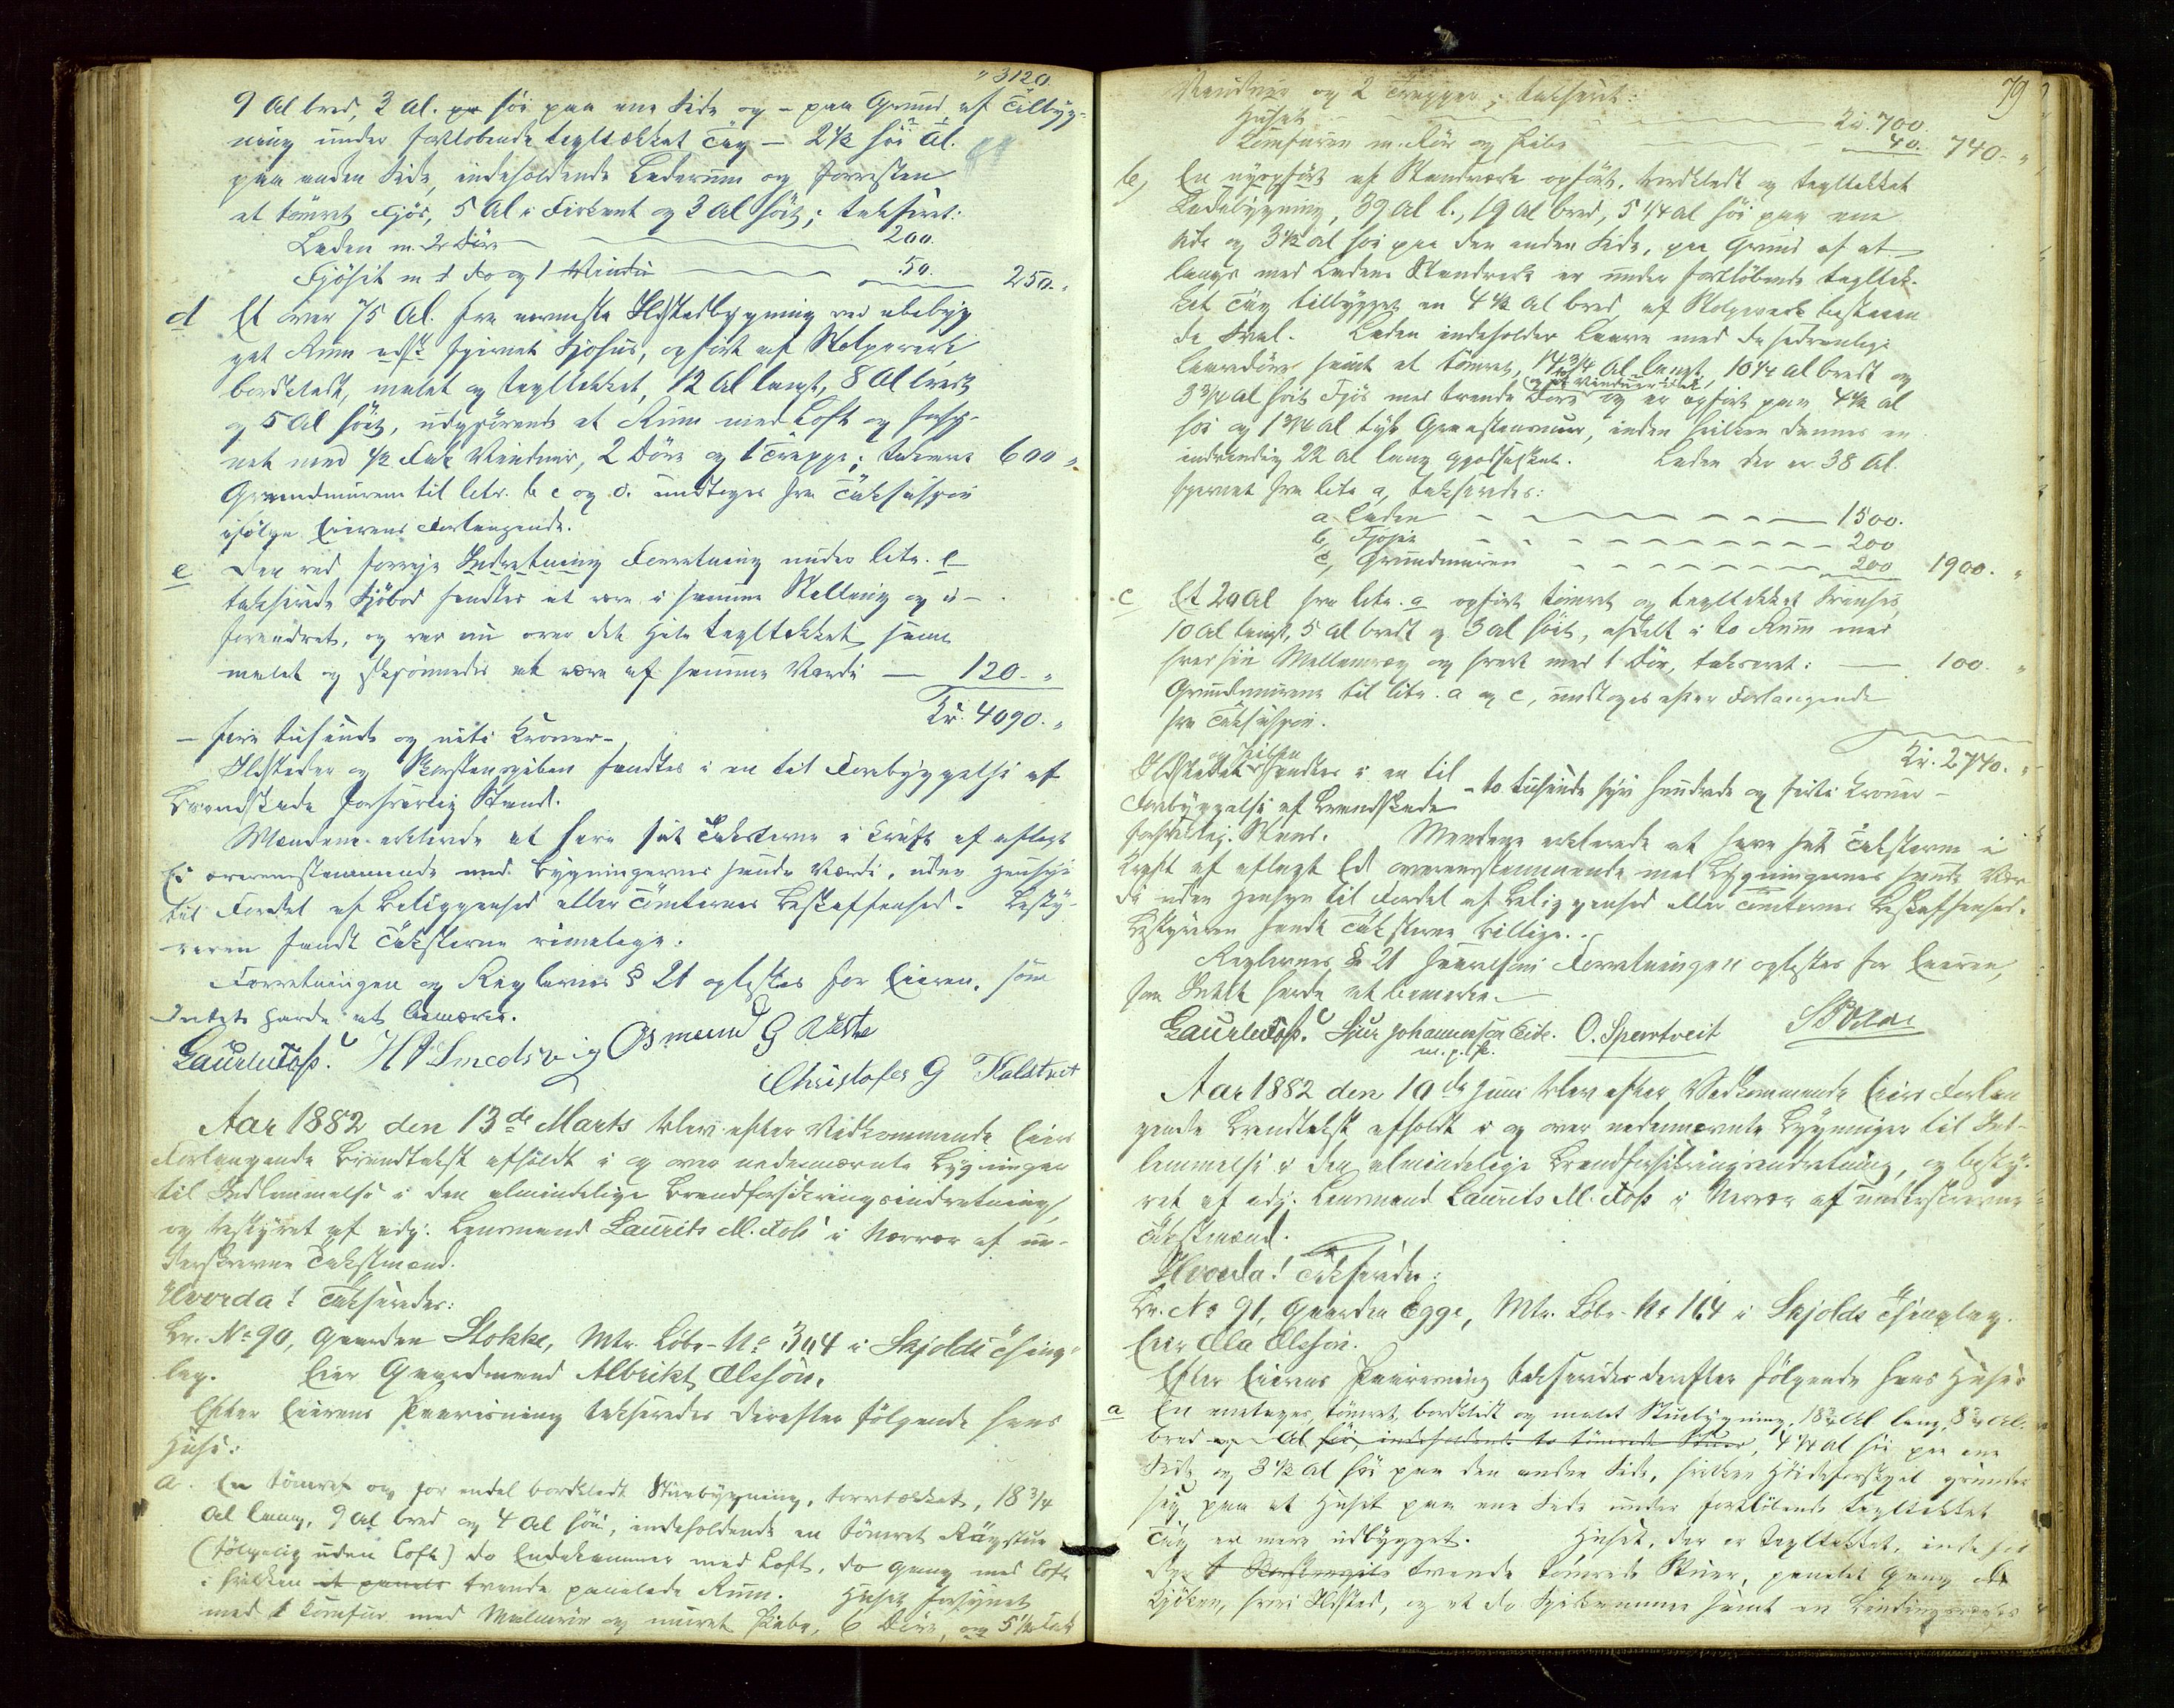 " 3120.
9 Al bred, 3 Al. høi paa ene Side og – paa Grund af Tilbyg-
ning under fortløbende tegltækket Tag – 2 1/2 høi Al.
paa anden Side, indeholdende Laderum og forresten
et tømret Fjøs, 5 Al i Firkant og 3 Al høit; takseret:
Laden m. 2 Døre 200.
Fjøset m 1 do og 1 Vindu 50. 250. "
d Et over 75 Al. fra nærmeste Ildstedbygning ved ubebyg
get Rum adskilt fjernet Sjøhus, opført af Stolpeverk
bordklædt, malet og tegltækket, 12 Al langt, 8 Al bredt
og 5 Al høit, udgjørende et Rum med Loft og forsy-
net med 1/2 Fag Vinduer, 2 Døre og 1 Trappe; takseret 600 "
Grundmurene til litr. b c og d. undtages fra Taksation
ifølge Eierens Forlangende.
e Den ved forrige Forretning under litr. e
takserede Sjøbod fandtes at være i samme Stilling og u-
forandret, og var nu over det Hele tegltækket samt
malet og skjønnedes at være af samme Værdi — 120. "
Kr. 4090. "
– fire tusinde og niti Kroner –
Ildsteder og Skorstenspiben fandtes i en til Forebyggelse af
Brandskade forsvarlig Stand.
Mændene erklærede at have sat Taksterne i Kraft af aflagt
Ed overensstemmende med Bygningernes sande Værdi, uden Hensyn
til Fordel af Beliggenhed eller Tomternes Beskaffenhed. Besty-
reren fandt Taksterne rimelige.
Forretningen og Reglernes § 21 oplæstes for Eieren, som
Intet havde at bemærke.
Laur. M. Foss. H P Smedsvig Osmund G Østbø
Christofer G Kaldtveit
Aar 1882 den 13de Marts blev efter Vedkommende Eiers
Forlangende Brandtakst afholdt i og over nedennævnte Bygninger
til Indlemmelse i den almindelige Brandforsikringsindretning,
og bestyret af adj. Lensmand Laurits M. Foss i Nærvær af un-
derskrevne Takstmænd.
Hvorda! Takseredes:
Br. No 90, Gaarden Stokke, Mtr. Løbe-No 304 i Skjolds Thing-
lag. Eier Gaardmand Albrikt Olsson.
Efter Eierens Paavisning takseredes derefter følgende hans
Huse:
a. En tømret og for endel bordklædt Stuebygning, torvtækket, 18 3/4
Al lang, 9 Al bred og 4 Al høi, indeholdende en tømret Røgstue
(følgelig uden Loft) do Endekammer med Loft, do Gang med Loft
i hvilken et panels trende panelede Rum. Huset forsynet
med 1 Komfur med Malmrør og muret Pibe, 6 Døre, og 5 1/2 Fag
79
Vinduer og 2 Trapper; takseret:
Huset Kr. 700.
Komfuren m. Rør og Pibe 40. 740. "
b, En nyopført af Standværk opført, bordklædt og tegltækket
Ladebygning, 39 Al l., 19 Al bred, 5 1/4 Al høi paa ene
Side og 3 1/2 Al høi paa den anden Side, paa Grund af at
langs med Ladens Standværk er under fortløbende tegltæk-
ket Tag tilbygget en 4 1/2 Al bred af Stolpeverk bestaaen
de Sval. Laden indeholder Laave med de sædvanlige
Laavedøre samt et tømret, 14 3/4 Al langt, 10 1/4 Al bredt og
3 3/4 Al høit Fjøs med trende Døre og er opført paa 4 1/2 Al
høi og 1 3/4 Al tyk Graastensmuur, inden hvilken dannes en
indvendig 22 Al lang Gjødselskjeld. Laden der er 38 Al.
fjernet fra litr a, takseredes:
a Laden 1500.
b, Fjøset 200
c, Grundmuren 200 1900. "
c Et 20 Al fra litr. a opført tømret og tegltækket
10 Al langt, 5 Al bredt og 3 Al høit, afdelt i to Rum med
Mellemvæg og hvert med 1 Dør, takseret: 100. "
Grundmurene til litr. a og c, undtages efter Forlangende
fra Taksation.
Kr. 2740. "
– to tusinde syv hundrede og firti Kroner –
Ildstedet og Piben fandtes i en til
Forebyggelse af Brandskade
forsvarlig Stand. Mændene erklærede at have sat Taksterne i
Kraft af aflagt Ed overensstemmende med Bygningernes sande Vær
di uden Hensyn til Fordel af Beliggenhed eller Tomternes Beskaffenhed.
Bestyreren fandt Taksterne billige.
Reglernes § 21 saavelsom Forretningen oplæstes for Eieren,
som Intet havde at bemærke.
Laur. M. Foss. Sjur Johannesson Eide. O. Sperrtveit
m. p. P.
Aar 1882 den 10de Juni blev efter Vedkommende Eiers Forlan
gende Brandtakst afholdt i og over nedennævnte Bygninger til Ind-
lemmelse i den almindelige Brandforsikringsindretning, og besty-
ret af adj. Lensmand Laurits M. Foss i Nærvær af underskrevne
Takstmænd.
Hvorda! Takseredes:
Br. No 91, Gaarden Egge, Mtr. Løbe-No 164 i Skjolds Thinglag.
Eier Ola Olsson.
Efter Eierens Paavisning takseredes derefter følgende hans Huse:
a En enetages, tømret, bordklædt og malet Stuebygning, 18 3/4 Al lang, 8 3/4 Al.
bred og Al høi, indeholdende to tømrede Stuer, 4 1/4 Al høi paa ene
Side og 3 1/2 Al høi paa den anden Side, hvilken Høideforskjel grunder
sig paa at Huset paa ene Side under fortløbende tegltækket
Tag er mere udbygget. Huset, der er tegltækket, indehol
der 1 Skorstenspibe tvende tømrede Stuer, panelet Gang og
Kjøkken, hvori Ildsted, og et do Spisekammer samt en Bindingsværks